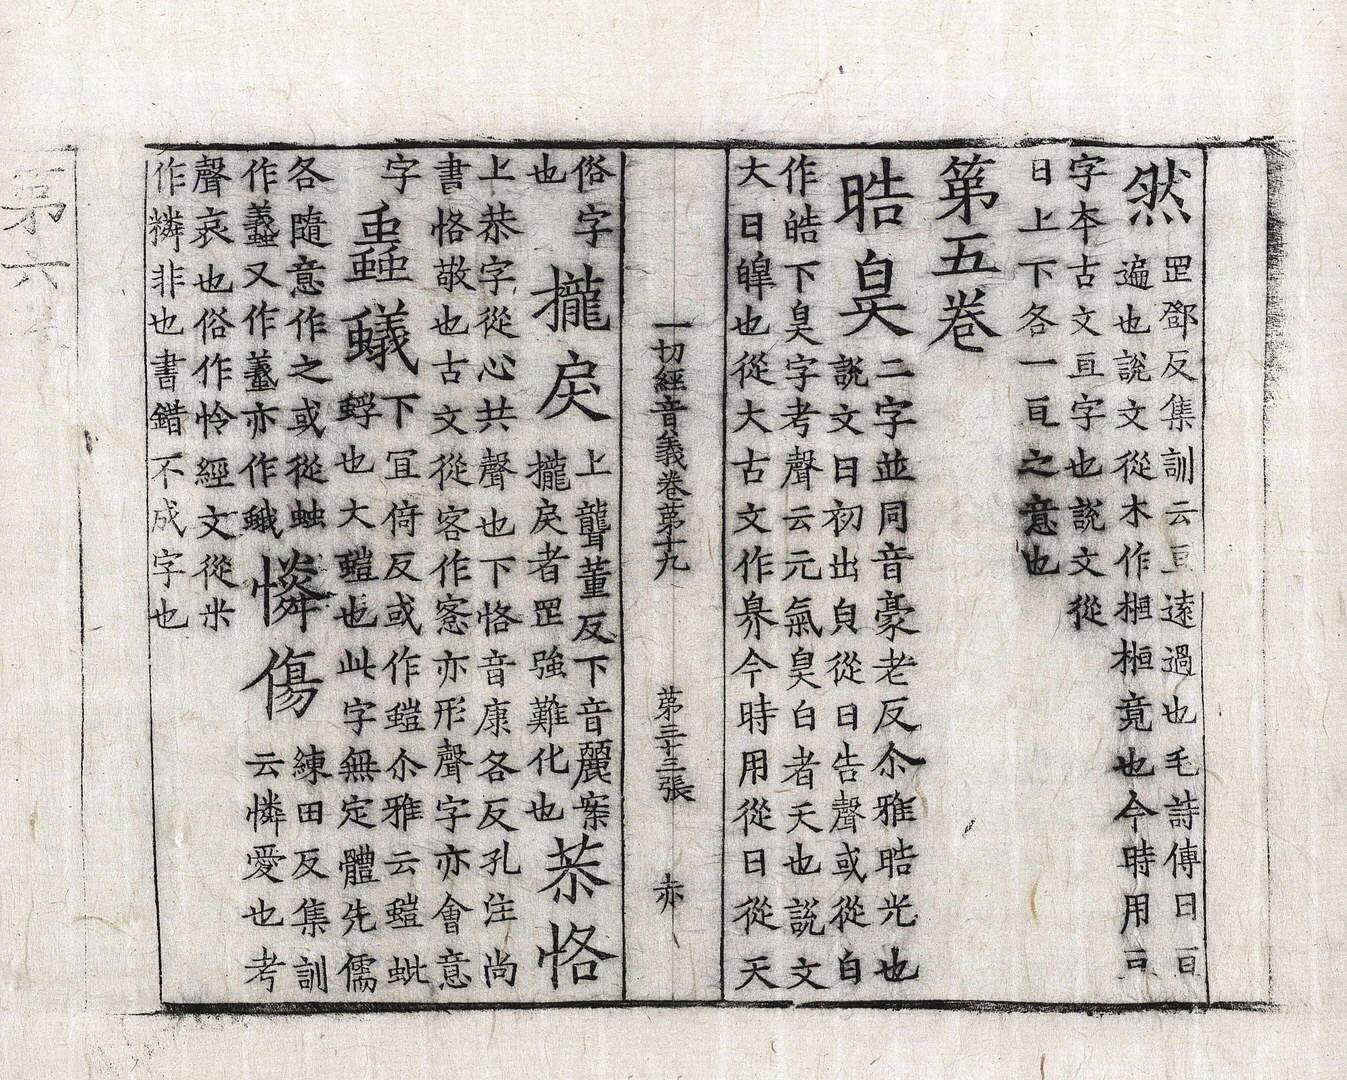 然 罡鄧反集訓云亘遠過也毛詩傳曰亘
遍也說文從木作桓桓竟也今時用亘
字夲古文亙字也說文從
日上下各一亙之意也
第五卷
晧昊 二字並同音豪老反尒雅晧光也
說文日初出皃從日告聲或從白
作皓下昊字考聲云元氣昊白者天也說文
大日皡也從大古文作昦今時用從日從天
一切經音義卷第十九 第三十三張 赤
俗字
也
攏戾 上聾董反下音麗案
攏戾者罡強難化也
恭恪
上恭字從心共聲也下恪音康各反孔注尚
書恪敬也古文從客作愙亦形聲字亦會意
字
蟻 下冝倚反或作螘尒雅云螘蚍
蜉也大螘也此字無定體先儒
各隨意作之或從䖵
作又作亦作蛾
憐傷 練田反集訓
云憐愛也考
聲哀也俗作怜經文從米
作非也書錯不成字也
第六